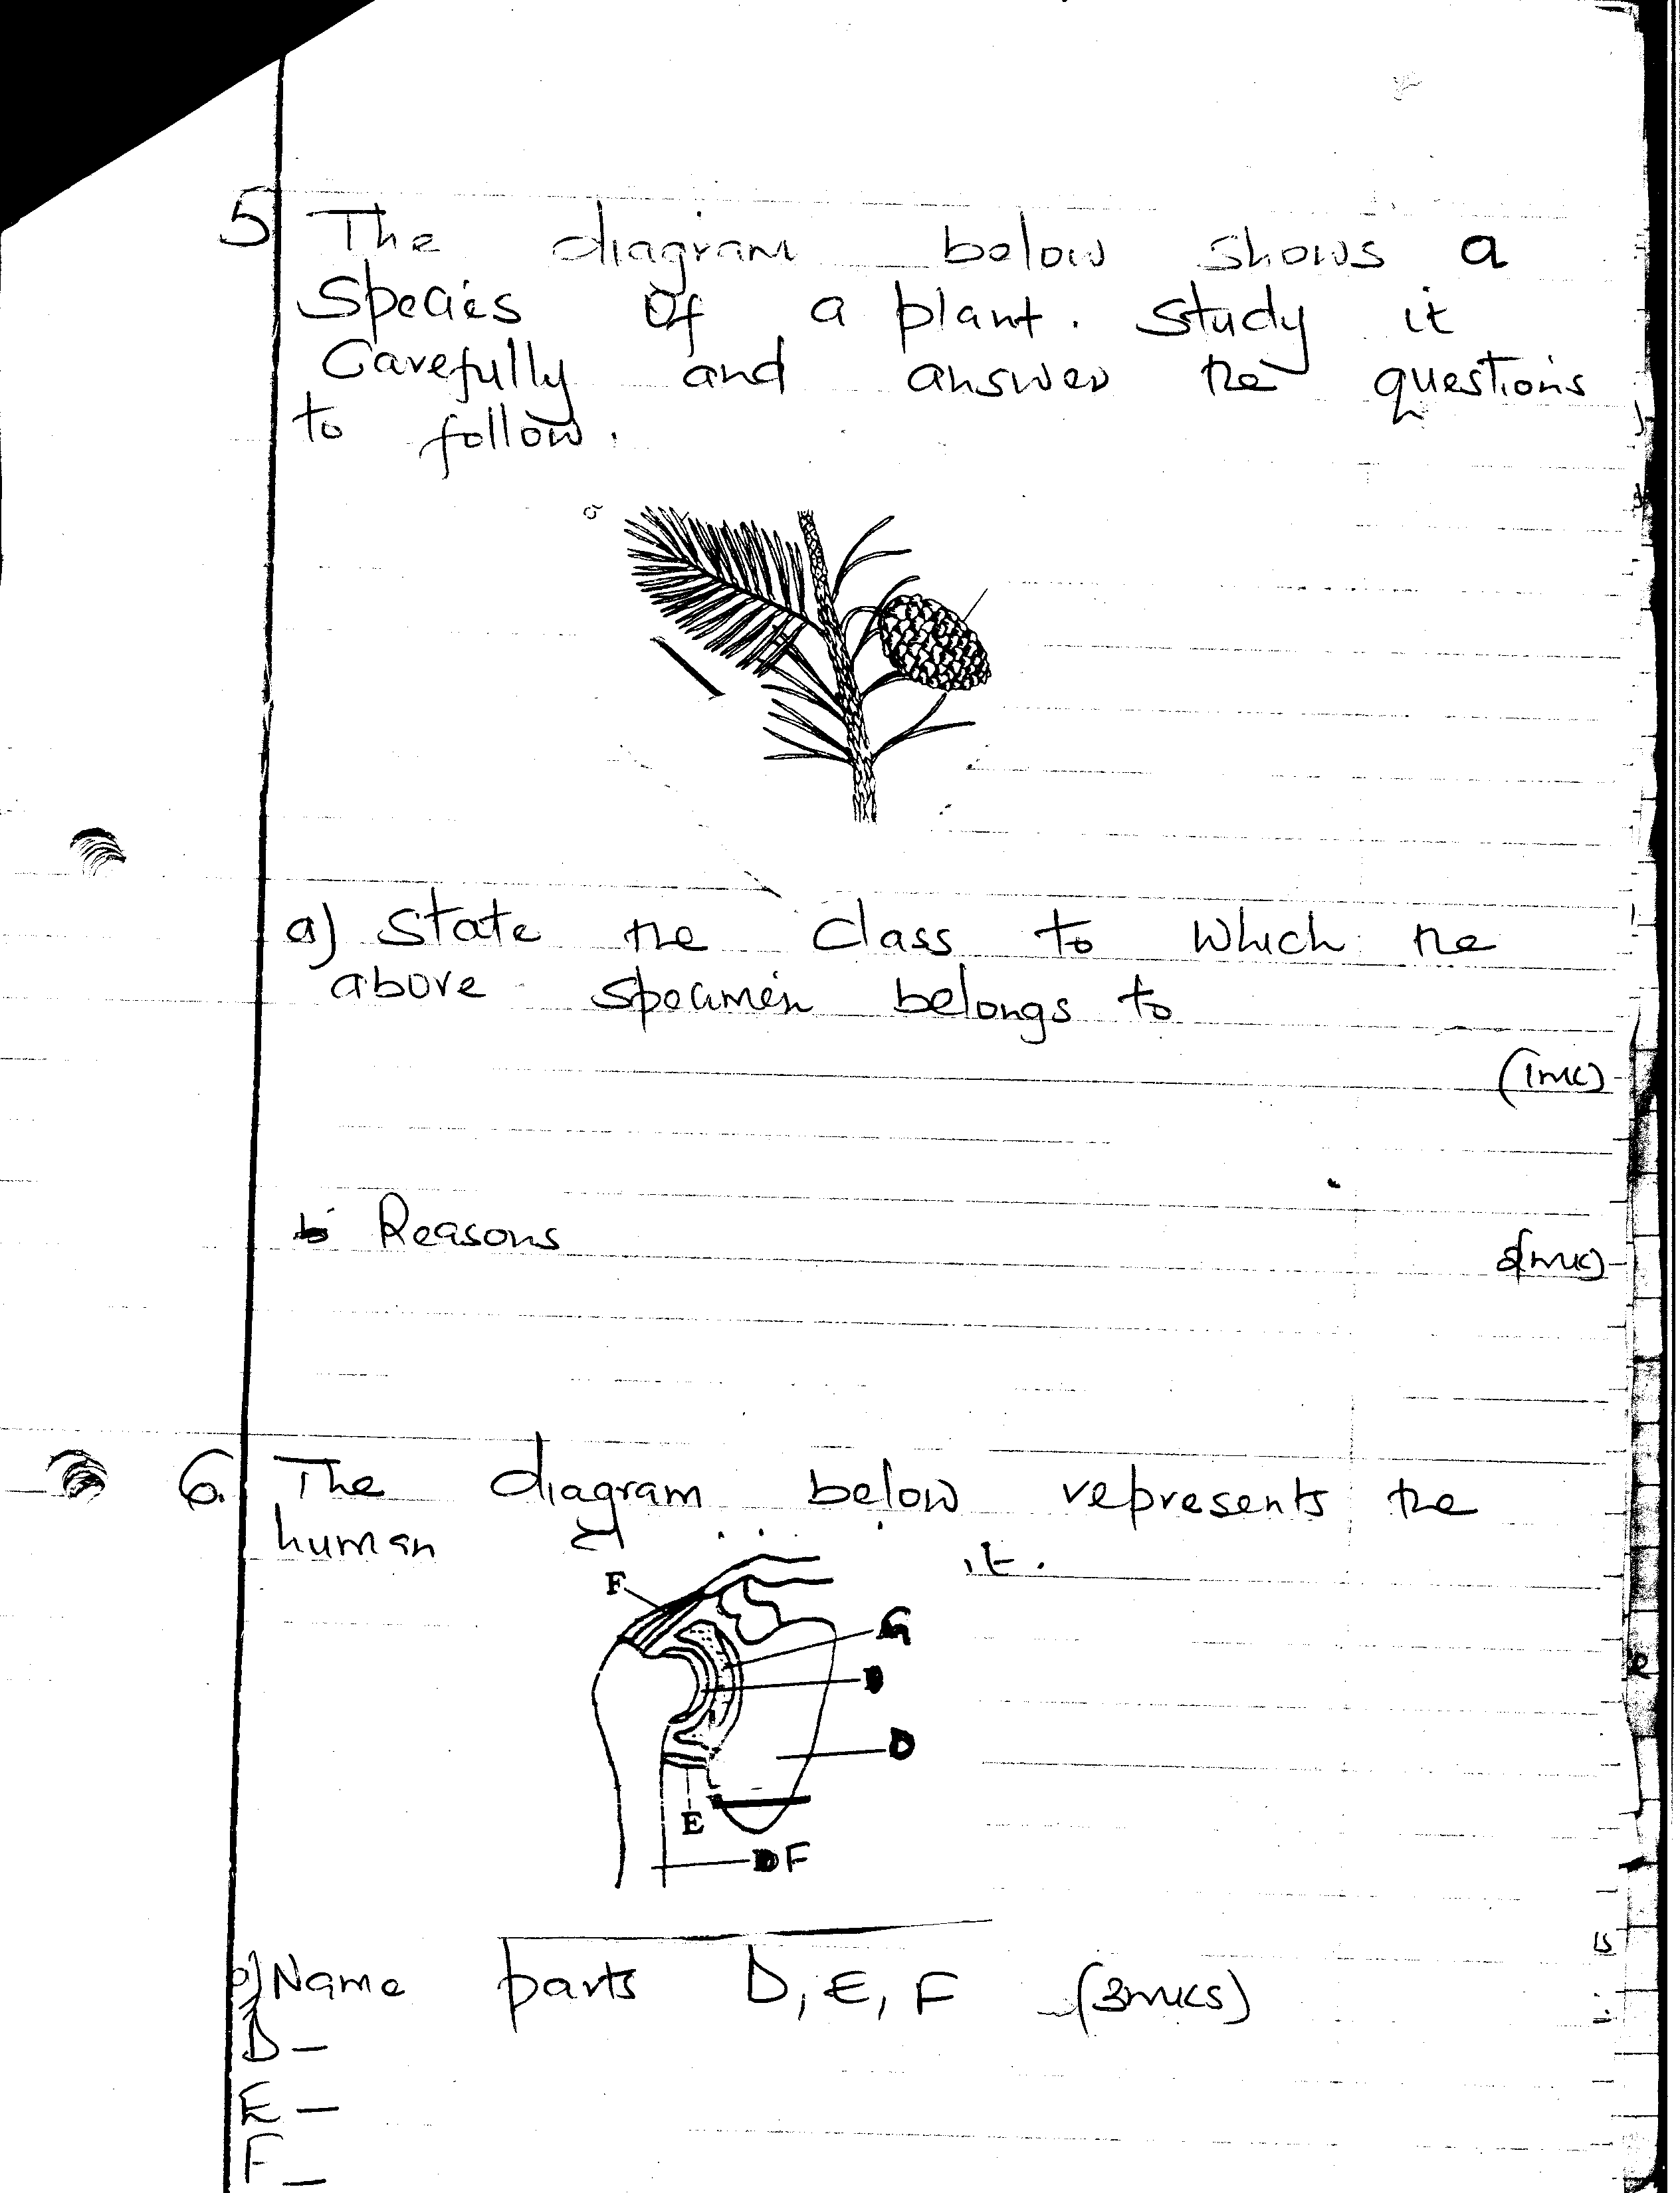 5 The diagram below shows a
Species of a plant. Study it
Carefully and answer the questions
to follow.
a) State the class to which the
above specimen belongs to
(1mk)
b Reasons
2(mk)
6. The diagram below represents the
human
it.
F
G
D
E
F
a) Name parts D, E, F (3mks)
D –
E –
F –